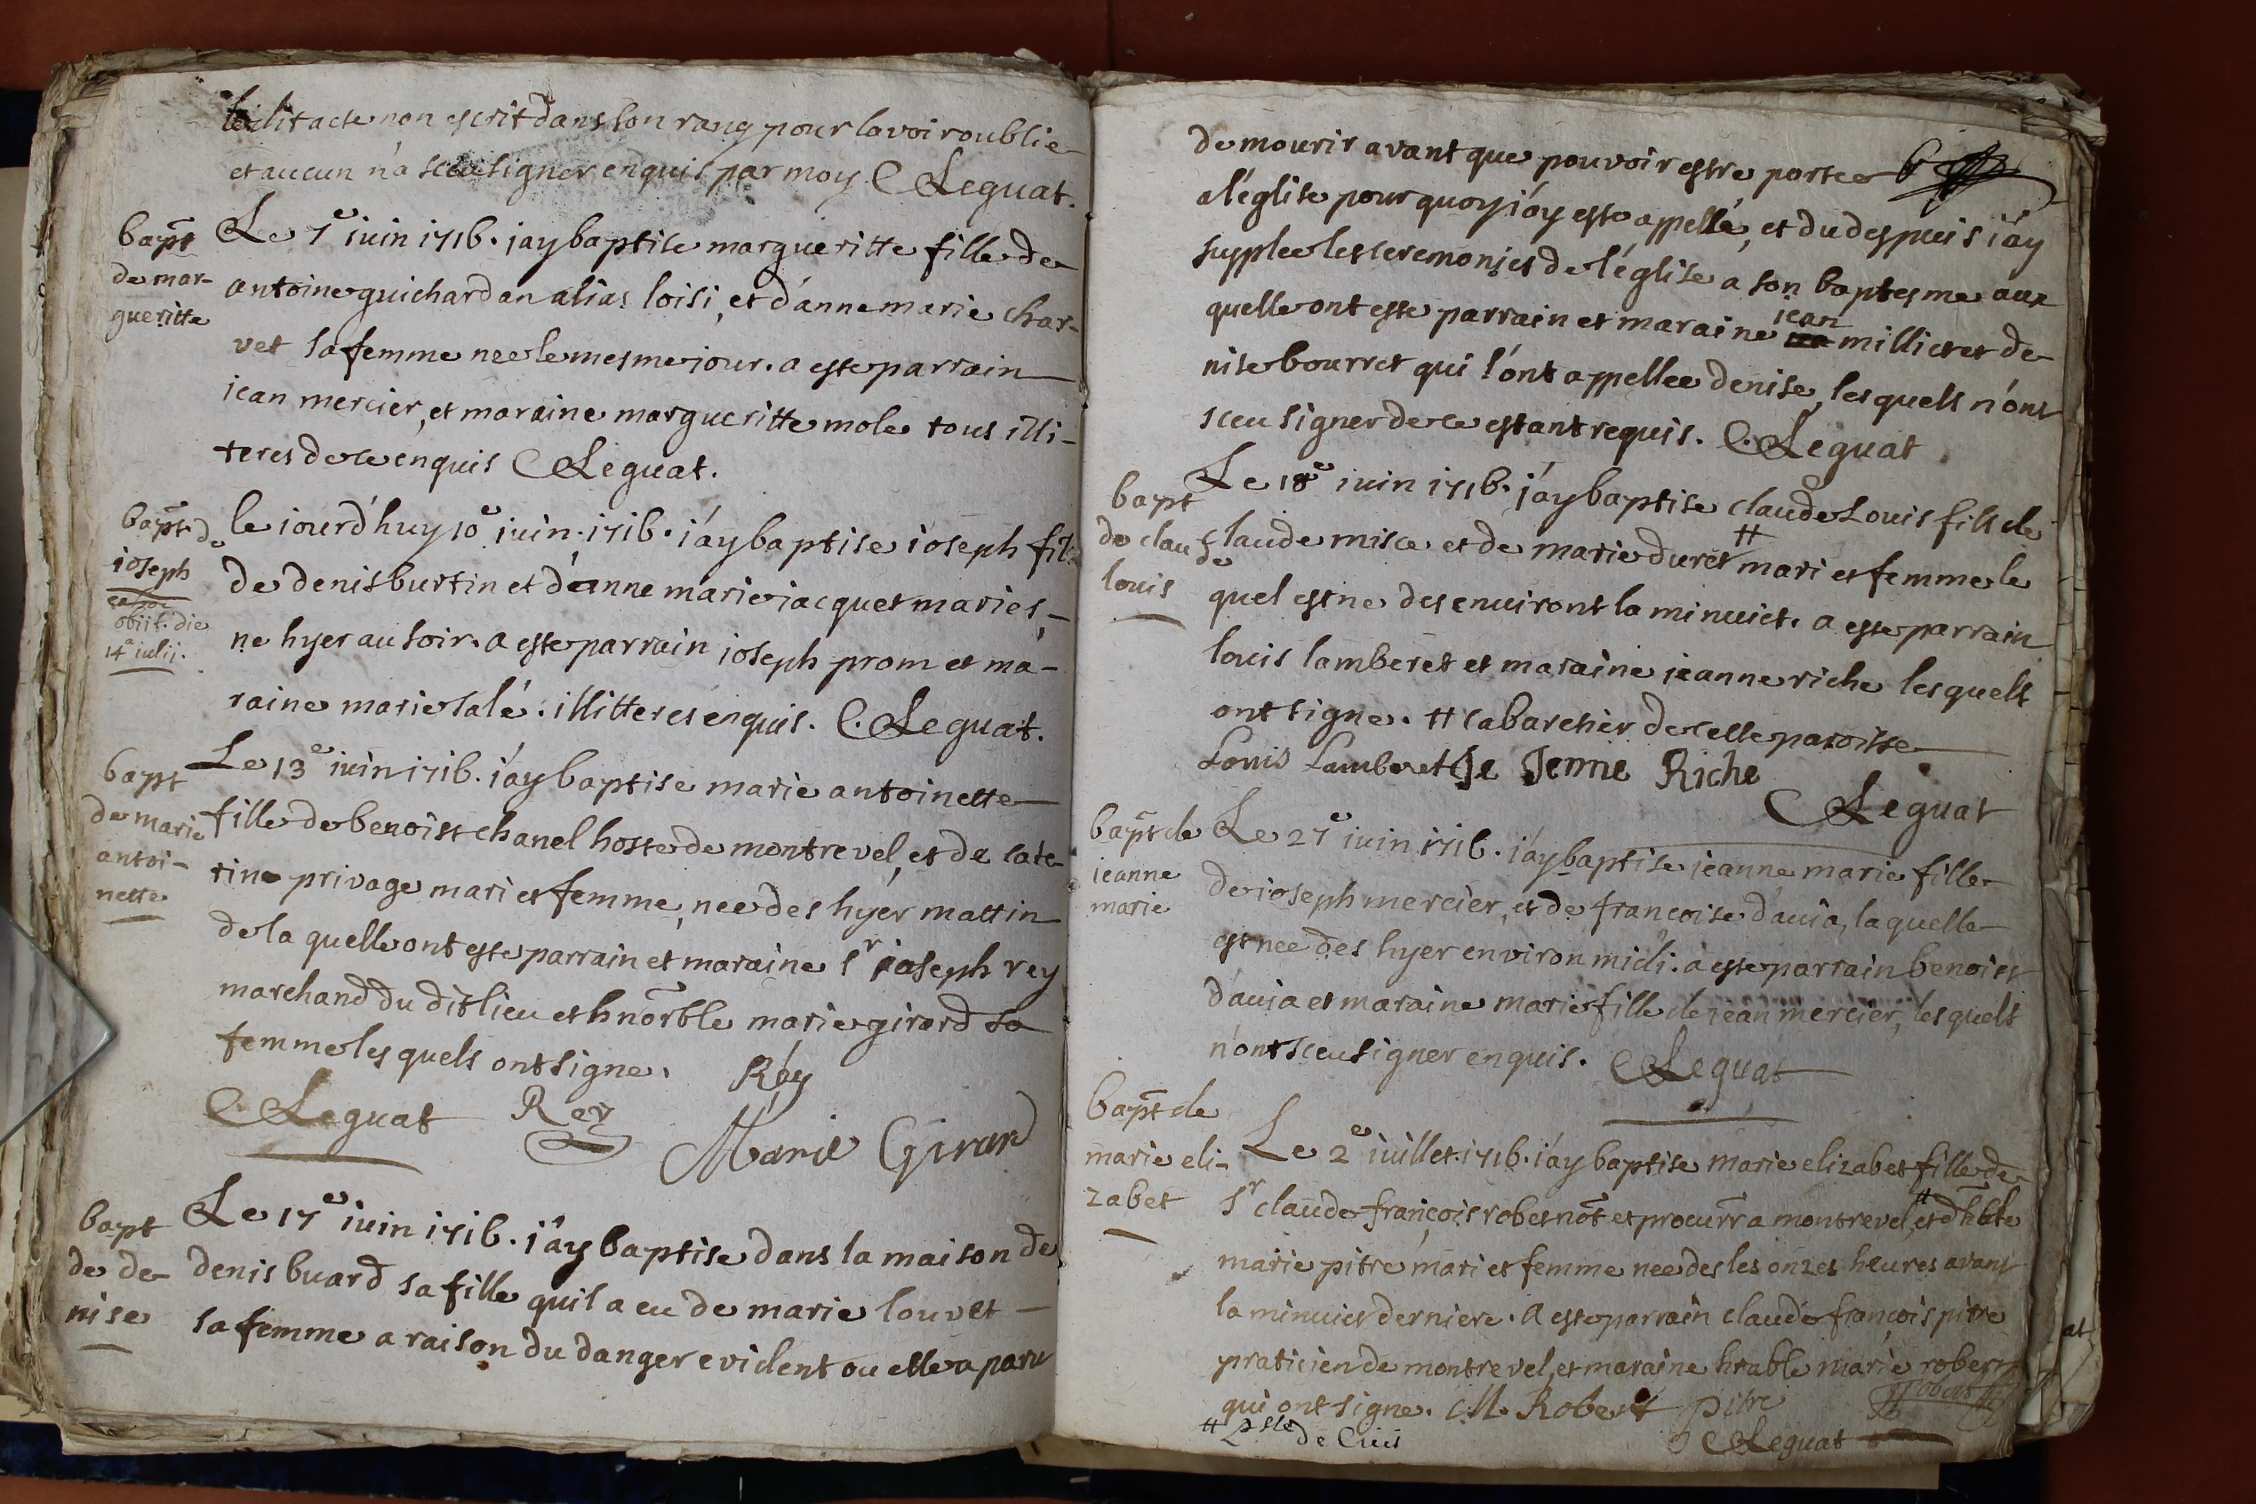 ledit acte non escrit dans son rang pour lavoir oublie
et aucun n'a sceu signer enquis par moy C Leguat.
bapt
de mar-
gueritte
Le 7e iuin 1716. jay baptise margueritte fille de
antoine guichardan alias loisi, et d'anne marie char-
vet sa femme nee le mesme jour. a este parrain
jean mercier, et maraine margueritte mole tous illi-
teres de ce enquis C Leguat.
bapt. de
ioseph
obiit. die
14a iulij.
le iourd'huy 10e iuin. 1716. i'ay baptise ioseph fils
de denis burtin et d'anne marie jacquet maries,
ne hyer au soir. a este parrain ioseph prom et ma-
raine marie salé. illitteres enquis. C. Leguat.
bapt
de marie
antoi-
nette
Le 13e iuin 1716. i'ay baptise marie antoinette
fille de benoist chanel hoste de montrevel, et de cate-
rine privage mari et femme, nee des hyer mattin
de la quelle ont este parrain et maraine sr joseph rey
marchand du dit lieu et hnorble marie girard sa
femme les quels ont signe. Réy
C. Leguat Rey
Marie Girard
bapt
de de-
nise
Le 17e iuin 1716. i'ay baptise dans la maison de
denis buard sa fille quil a eu de marie louvet
sa femme a raison du danger evident ou elle a paru
de mourir avant que pouvoir estre portee
a l'église pour quoy i'ay este appellé, et du despuis i'ay
supplee les ceremonies de l'église a son baptesme aux
quelle ont este parrain et maraine jean milliet et de-
nise bourret qui l'ont appellee denise, les quels n'ont
sceu signer de ce estant requis. C. Leguat
bapt
de claude
louis
Le 18e iuin 1716. j'ay baptise claude Louis fils de
claude misce et de marie duret # mari et femme le
quel est ne des environt la minuict. a este parrain
louis lamberet et maraine jeanne riche les quels
ont signe. # cabaretier de celle paroisse
Louis Lamberet Je Jenne Riche
C Leguat
bapt de
jeanne
marie
Le 27e iuin 1716. i'ay baptise jeanne marie fille
de ioseph mercier, et de françoise d'auia, la quelle
est nee des hyer environ midi. a este parrain benoist
d'auia et maraine marie fille de jean mercier, les quels
n'ont sceu signer enquis. C Leguat
bapt de
marie eli-
zabet
Le 2e iuillet. 1716. i'ay baptise marie elizabet fille de
sr claude françois robert not et procurr a montrevel, # et d'hble
marie pitre, mari et femme nee des les onzes heures avant
la minuict derniere. a este parrain claude françois pitre
praticien de montrevel, et maraine hrable marie robert
qui ont signe. M. Robert pitre
C Leguat